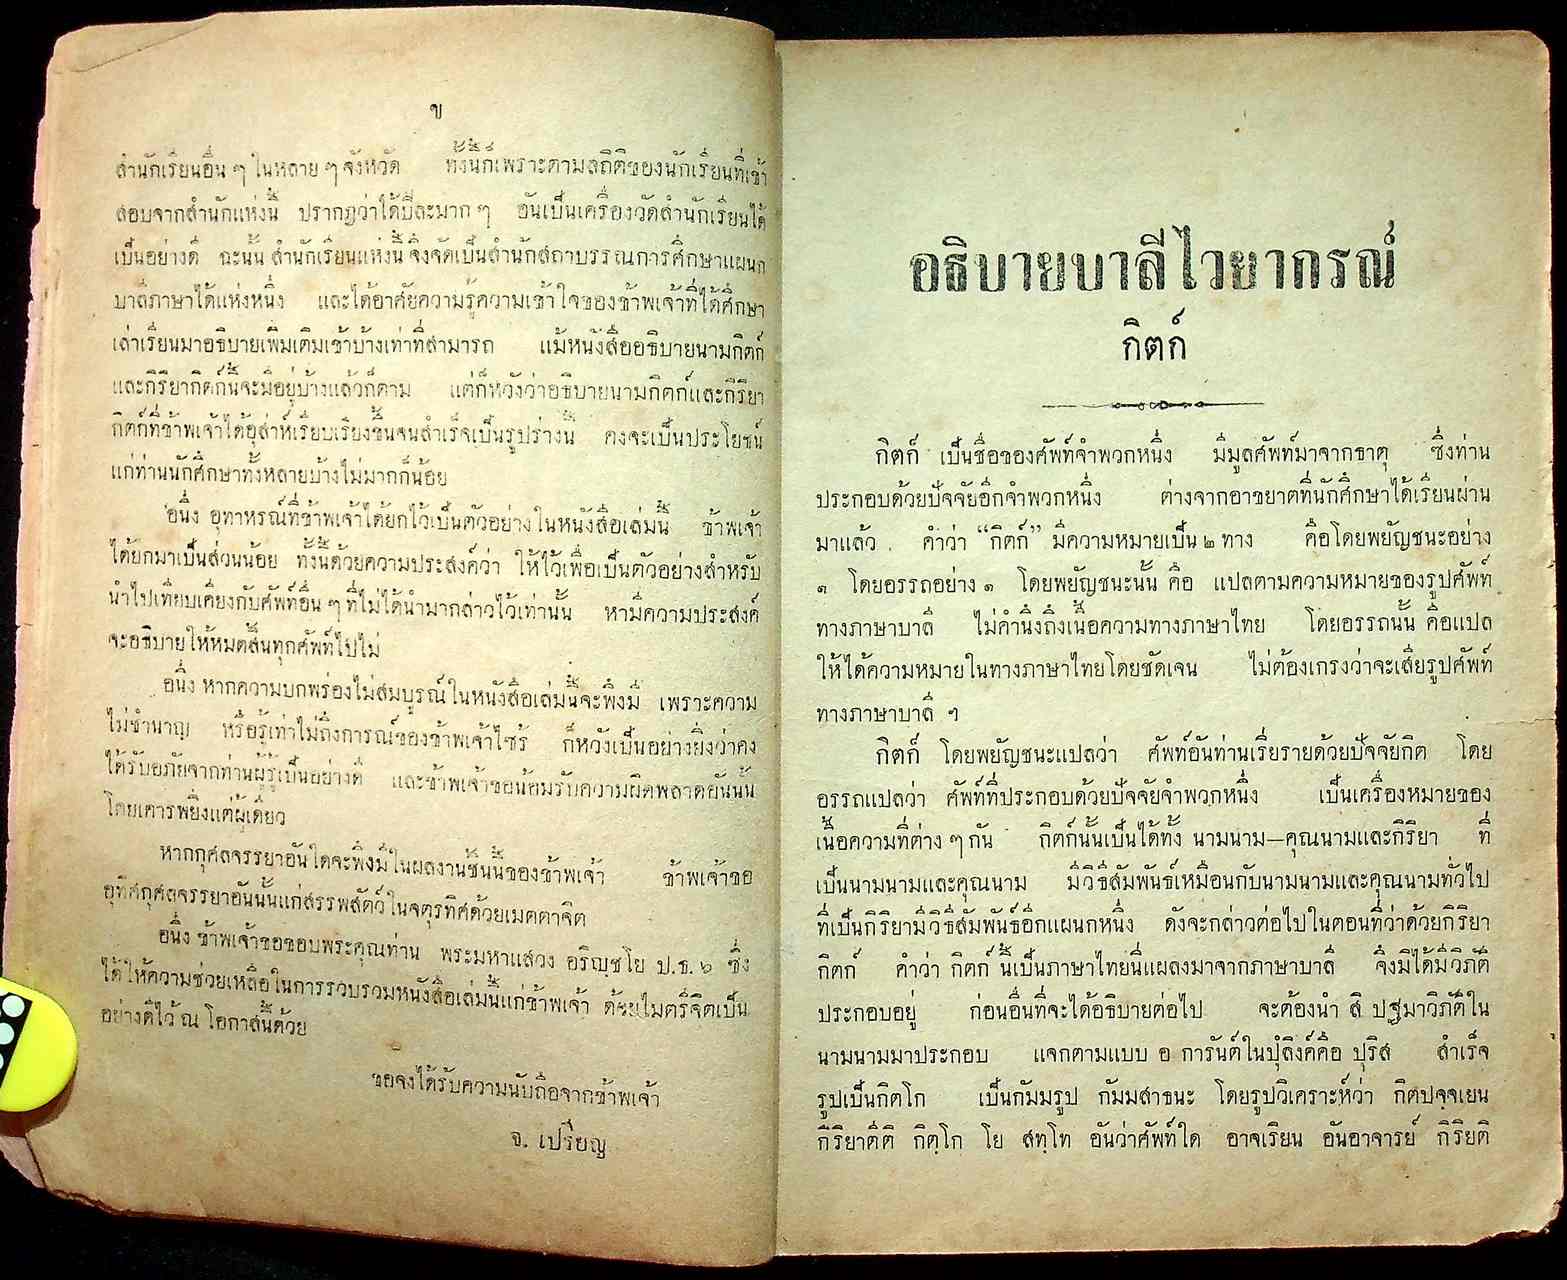 ข
สำนักเรียนอื่น ๆ ในหลาย ๆ จังหวัด ทั้งนี้ก็เพราะตามสถิติของนักเรียนที่เข้า
สอบจากสำนักแห่งนี้ ปรากฏว่าได้ปีละมาก ๆ อันเป็นเครื่องวัดสำนักเรียนได้
เป็นอย่างดี ฉะนั้น สำนักเรียนแห่งนี้ จึงจัดเป็นสำนักสถาบรรณการศึกษาแผนก
บาลีภาษาได้แห่งหนึ่ง และได้อาศัยความรู้ความเข้าใจของข้าพเจ้าที่ได้ศึกษา
เล่าเรียนมาอธิบายเพิ่มเติมเข้าบ้างเท่าที่สามารถ แม้หนังสืออธิบายนามกิตก์
และกิริยากิตก์นี้จะมีอยู่บ้างแล้วก็ตาม แต่ก็หวังว่าอธิบายนามกิตก์และกิริยา
กิตก์ที่ข้าพเจ้าได้อุส่าห์เรียบเรียงขึ้นจนสำเร็จเป็นรูปร่างนี้ คงจะเป็นประโยชน์
แก่ท่านนักศึกษาทั้งหลายบ้างไม่มากก็น้อย
อนึ่ง อุทาหรณ์ที่ข้าพเจ้าได้ยกไว้เป็นตัวอย่างในหนังสือเล่มนี้ ข้าพเจ้า
ได้ยกมาเป็นส่วนน้อย ทั้งนี้ด้วยความประสงค์ว่า ให้ไว้เพื่อเป็นตัวอย่างสำหรับ
นำไปเทียบเคียงกับศัพท์อื่น ๆ ที่ไม่ได้นำมากล่าวไว้เท่านั้น หามีความประสงค์
จะอธิบายให้หมดสิ้นทุกศัพท์ไปไม่
อนึ่ง หากความบกพร่องไม่สมบูรณ์ในหนังสือเล่มนี้จะพึงมี เพราะความ
ไม่ชำนาญ หรือรู้เท่าไม่ถึงการณ์ของข้าพเจ้าไซร้ ก็หวังเป็นอย่างยิ่งว่าคง
ได้รับอภัยจากท่านผู้รู้เป็นอย่างดี และข้าพเจ้าขอน้อมรับความผิดพลาดอันนั้น
โดยเคารพยิ่งแต่ผู้เดียว
หากกุศลจรรยาอันใดจะพึงมีในผลงานชิ้นนี้ของข้าพเจ้า ข้าพเจ้าขอ
อุทิศกุศลจรรยาอันนั้นแก่สรรพสัตว์ในจตุรทิศด้วยเมตตาจิต
อนึ่ง ข้าพเจ้าขอขอบพระคุณท่าน พระมหาแสวง อริญฺชโย ป.ธ. ๖ ซึ่ง
ได้ให้ความช่วยเหลือในการรวบรวมหนังสือเล่มนี้แก่ข้าพเจ้า ด้วยไมตรีจิตเป็น
อย่างดีไว้ ณ โอกาสนี้ด้วย
ขอจงได้รับความนับถือจากข้าพเจ้า
จ. เปรียญ
อธิบายบาลีไวยากรณ์
กิตก์
กิตก์ เป็นชื่อของศัพท์จำพวกหนึ่ง มีมูลศัพท์มาจากธาตุ ซึ่งท่าน
ประกอบด้วยปัจจัยอีกจำพวกหนึ่ง ต่างจากอาขยาตที่นักศึกษาได้เรียนผ่าน
มาแล้ว คำว่า “กิตก์” มีความหมายเป็น ๒ ทาง คือโดยพยัญชนะอย่าง
๑ โดยอรรถอย่าง ๑ โดยพยัญชนะนั้น คือ แปลตามความหมายของรูปศัพท์
ทางภาษาบาลี ไม่คำนึงถึงเนื้อความทางภาษาไทย โดยอรรถนั้น คือแปล
ให้ได้ความหมายในทางภาษาไทยโดยชัดเจน ไม่ต้องเกรงว่าจะเสียรูปศัพท์
ทางภาษาบาลี ฯ
กิตก์ โดยพยัญชนะแปลว่า ศัพท์อันท่านเรี่ยรายด้วยปัจจัยกิต โดย
อรรถแปลว่า ศัพท์ที่ประกอบด้วยปัจจัยจำพวกหนึ่ง เป็นเครื่องหมายของ
เนื้อความที่ต่าง ๆ กัน กิตก์นั้นเป็นได้ทั้ง นามนาม–คุณนามและกิริยา ที่
เป็นนามนามและคุณนาม มีวิธีสัมพันธ์เหมือนกับนามนามและคุณนามทั่วไป
ที่เป็นกิริยามีวิธีสัมพันธ์อีกแผนกหนึ่ง ดังจะกล่าวต่อไปในตอนที่ว่าด้วยกิริยา
กิตก์ คำว่า กิตก์ นี้เป็นภาษาไทยนี่แผลงมาจากภาษาบาลี จึงมิได้มีวิภัติ
ประกอบอยู่ ก่อนอื่นที่จะได้อธิบายต่อไป จะต้องนำ สิ ปฐมาวิภัติใน
นามนามมาประกอบ แจกตามแบบ อ การันต์ในปุํลิงค์คือ ปุริส สำเร็จ
รูปเป็นกิตโก เป็นกัมมรูป กัมมสาธนะ โดยรูปวิเคราะห์ว่า กิตปจฺจเยน
กิริยาตีติ กิตฺโก โย สทฺโท อันว่าศัพท์ใด อาจเรียน อันอาจารย์ กิริยติ